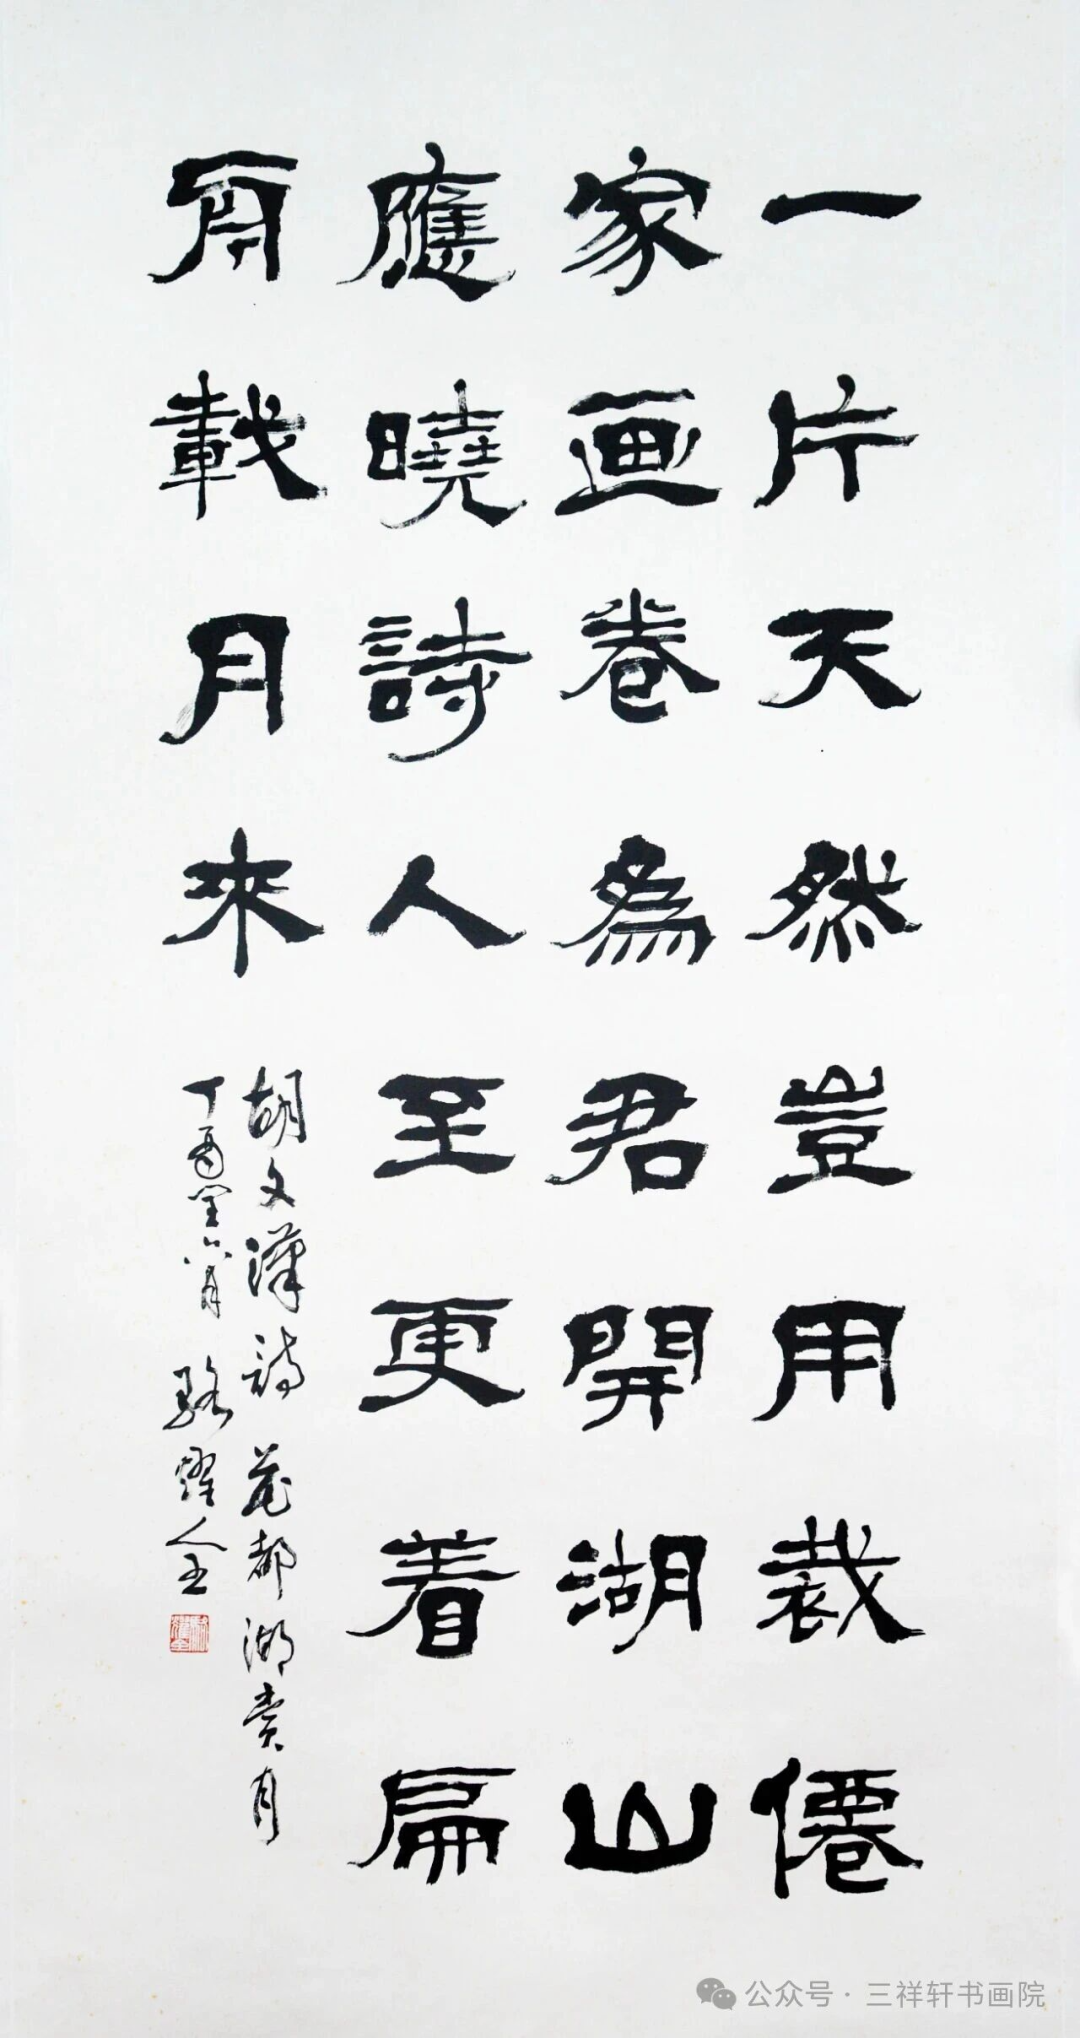 一片天然豈用裁僊
家画卷為君開湖山
應曉詩人至更着扁
舟載月來
胡文漢詩 花都湖賞月
丁酉閏六月 駱燿全
公众号 · 三祥轩书画院